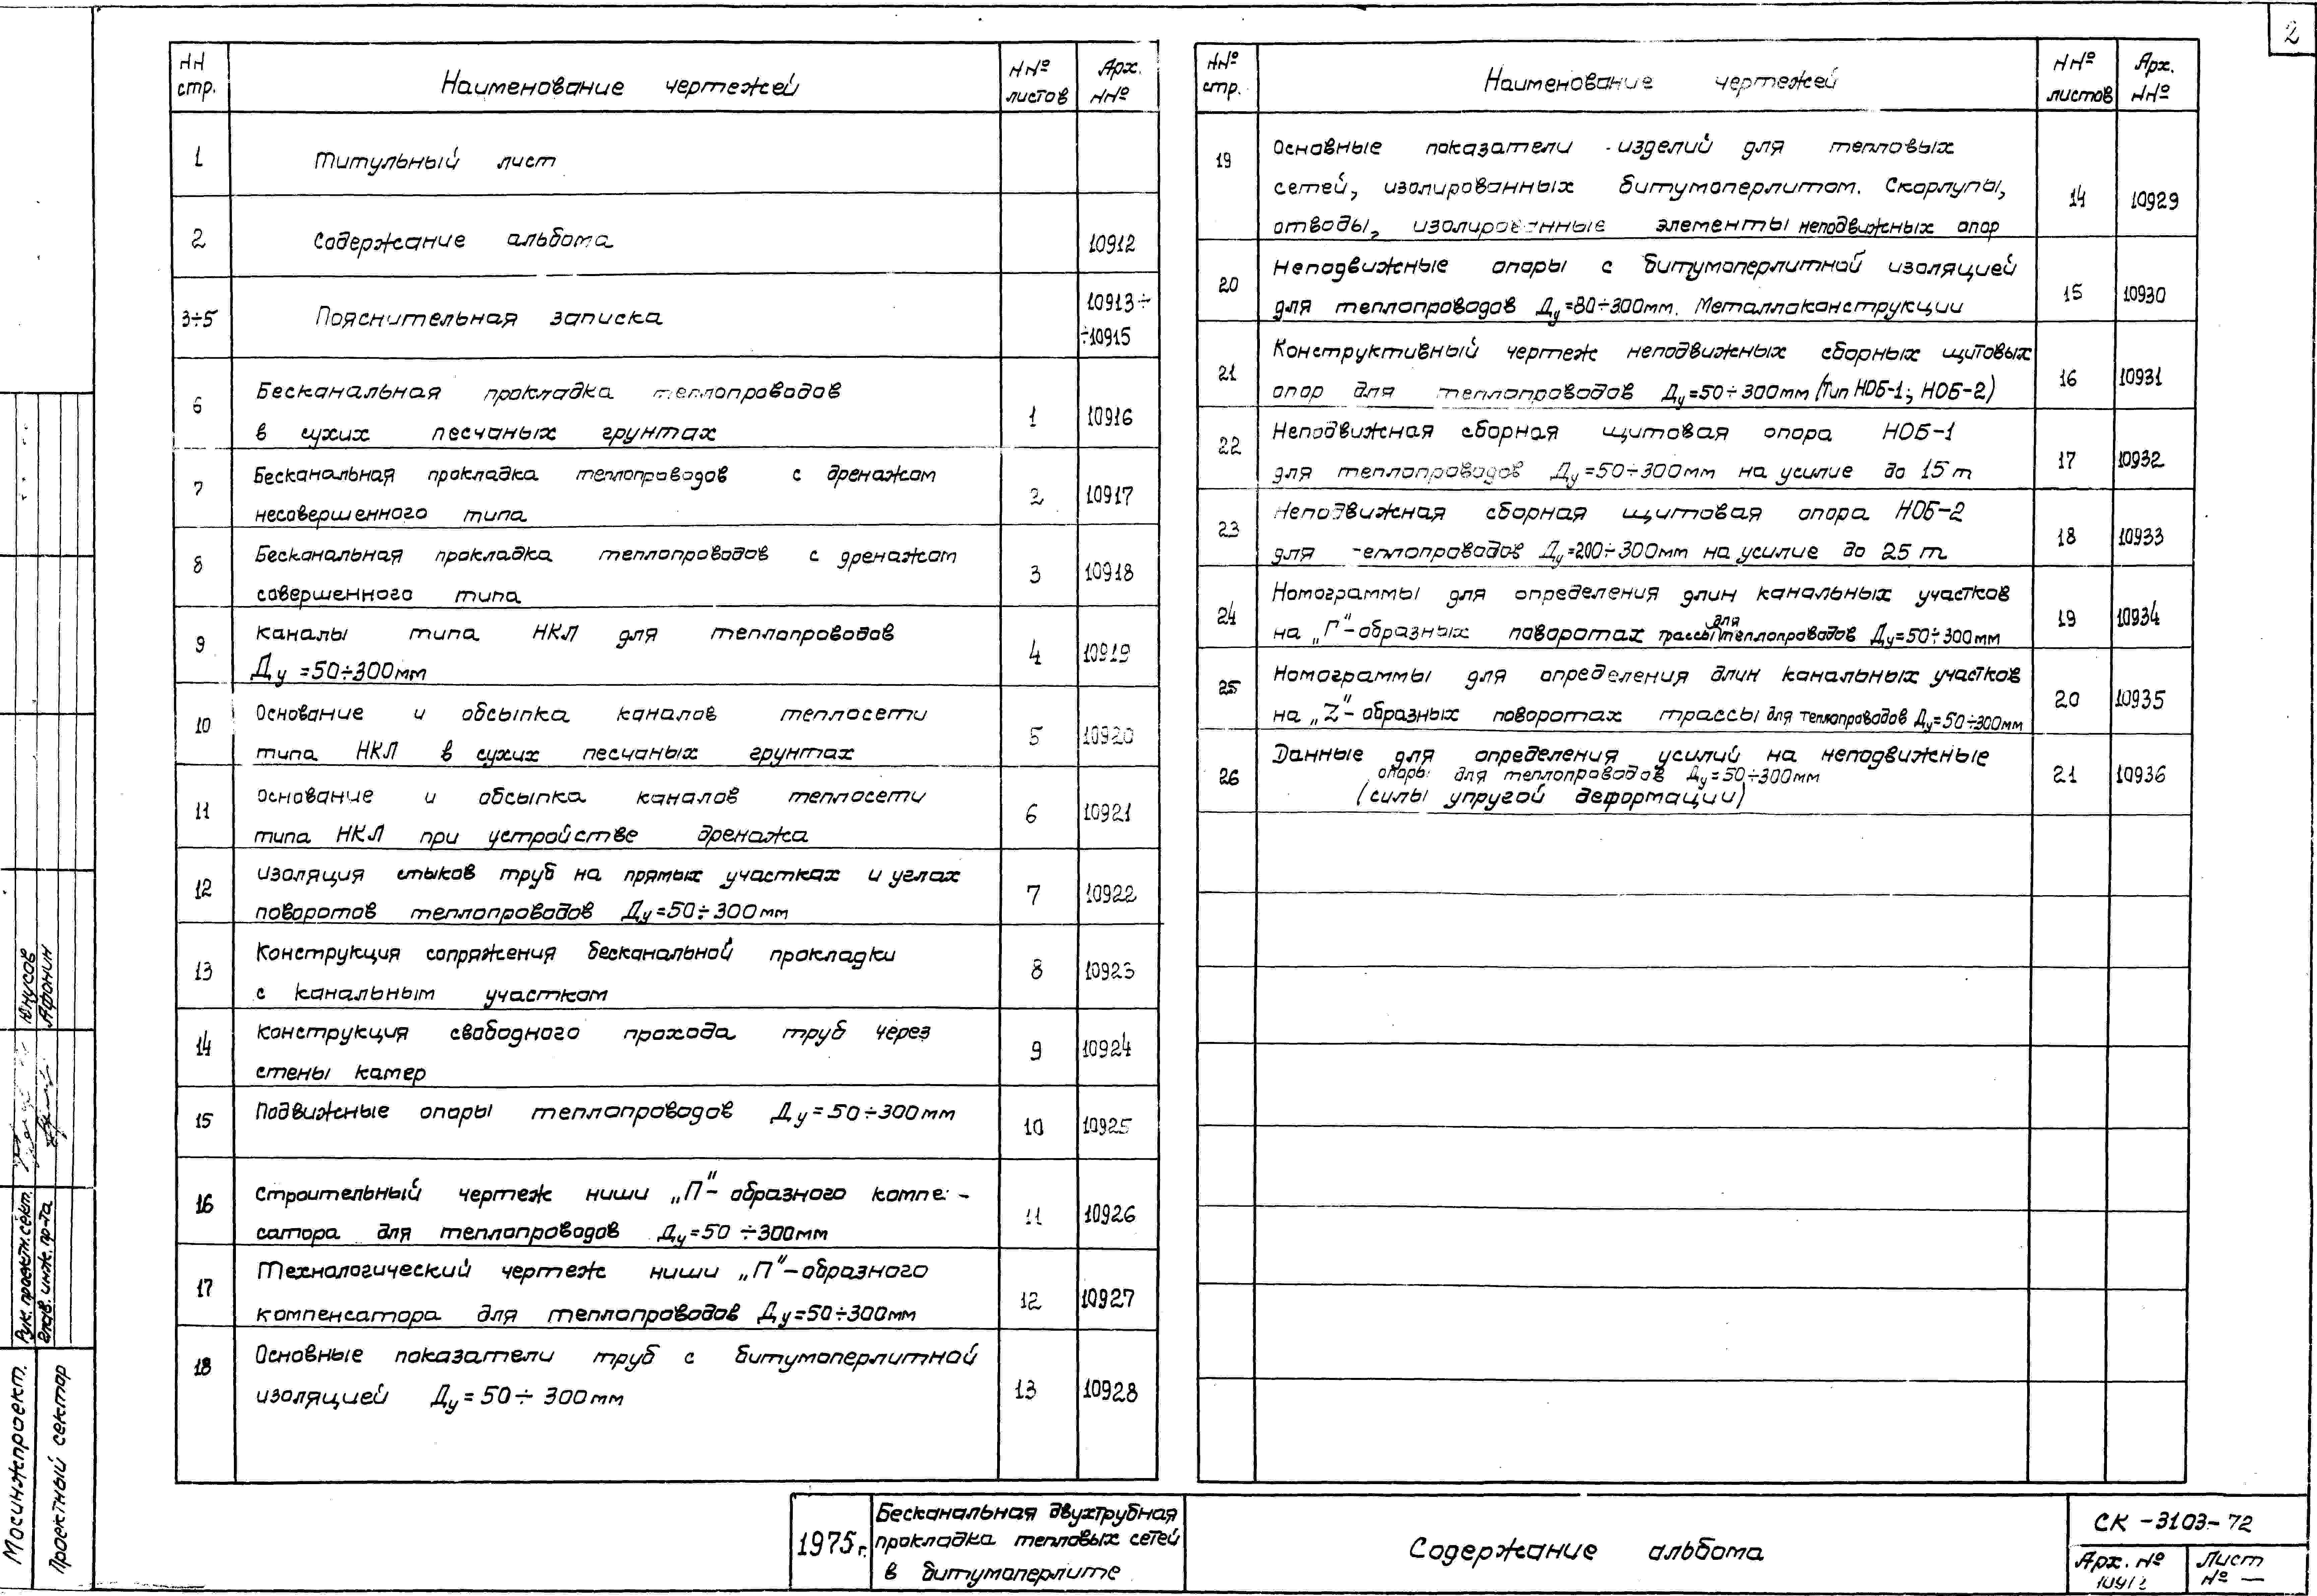 2
НН стр. Наименование чертежей ННº листов Арх. ННº
1 Титульный лист
2 Содержание альбома 10912
3÷5 Пояснительная записка 10913÷
÷10915
6 Бесканальная прокладка теплопроводов
в сухих песчаных грунтах 1 10916
7 Бесканальная прокладка теплопроводов с дренажом
несовершенного типа 2 10917
8 Бесканальная прокладка теплопроводов с дренажом
совершенного типа 3 10918
9 Каналы типа НКЛ для теплопроводов
Ду =50÷300мм 4 10919
10 Основание и обсыпка каналов теплосети
типа НКЛ в сухих песчаных грунтах 5 10920
11 Основание и обсыпка каналов теплосети
типа НКЛ при устройстве дренажа 6 10921
12 Изоляция стыков труб на прямых участках и углах
поворотов теплопроводов Ду=50÷300мм 7 10922
13 Конструкция сопряжения бесканальной прокладки
с канальным участком 8 10923
14 Конструкция свободного прохода труб через
стены камер 9 10924
15 Подвижные опоры теплопроводов Ду=50÷300мм 10 10925
16 Строительный чертеж ниши „П"- образного компен-
сатора для теплопроводов Ду=50÷300мм 11 10926
17 Технологический чертеж ниши „П"-образного
компенсатора для теплопроводов Ду=50÷300мм 12 10927
18 Основные показатели труб с битумоперлитной
изоляцией Ду=50÷300мм 13 10928
ННº стр. Наименование чертежей ННº листов Арх. ННº
19 Основные показатели изделий для тепловых
сетей, изолированных битумоперлитом. Скорлупы,
отводы, изолированные элементы неподвижных опор 14 10929
20 Неподвижные опоры с битумоперлитной изоляцией
для теплопроводов Ду=80÷300мм. Металлоконструкции 15 10930
21 Конструктивный чертеж неподвижных сборных щитовых
опор для теплопроводов Ду=50÷300мм (Тип НОБ-1; НОБ-2) 16 10931
22 Неподвижная сборная щитовая опора НОБ-1
для теплопроводов Ду=50÷300мм на усилие до 15т 17 10932
23 Неподвижная сборная щитовая опора НОБ-2
для теплопроводов Ду=200÷300мм на усилие до 25т 18 10933
24 Номограммы для определения длин канальных участков
на „Г"-образных поворотах трассы для теплопроводов Ду=50÷300мм 19 10934
25 Номограммы для определения длин канальных участков
на „Z"- образных поворотах трассы для теплопроводов Ду=50÷300мм 20 10935
26 Данные для определения усилий на неподвижные
опоры для теплопроводов Ду=50÷300мм
(силы упругой деформации) 21 10936
Мосинжпроект.
Проектный сектор
Рук. проектн. сект. Юнусов
Глав. инж. пр-та Афонин
1975г.
Бесканальная двухтрубная
прокладка тепловых сетей
в битумоперлите
Содержание альбома
СК -3103-72
Арх. Нº
10912
Лист
Нº —